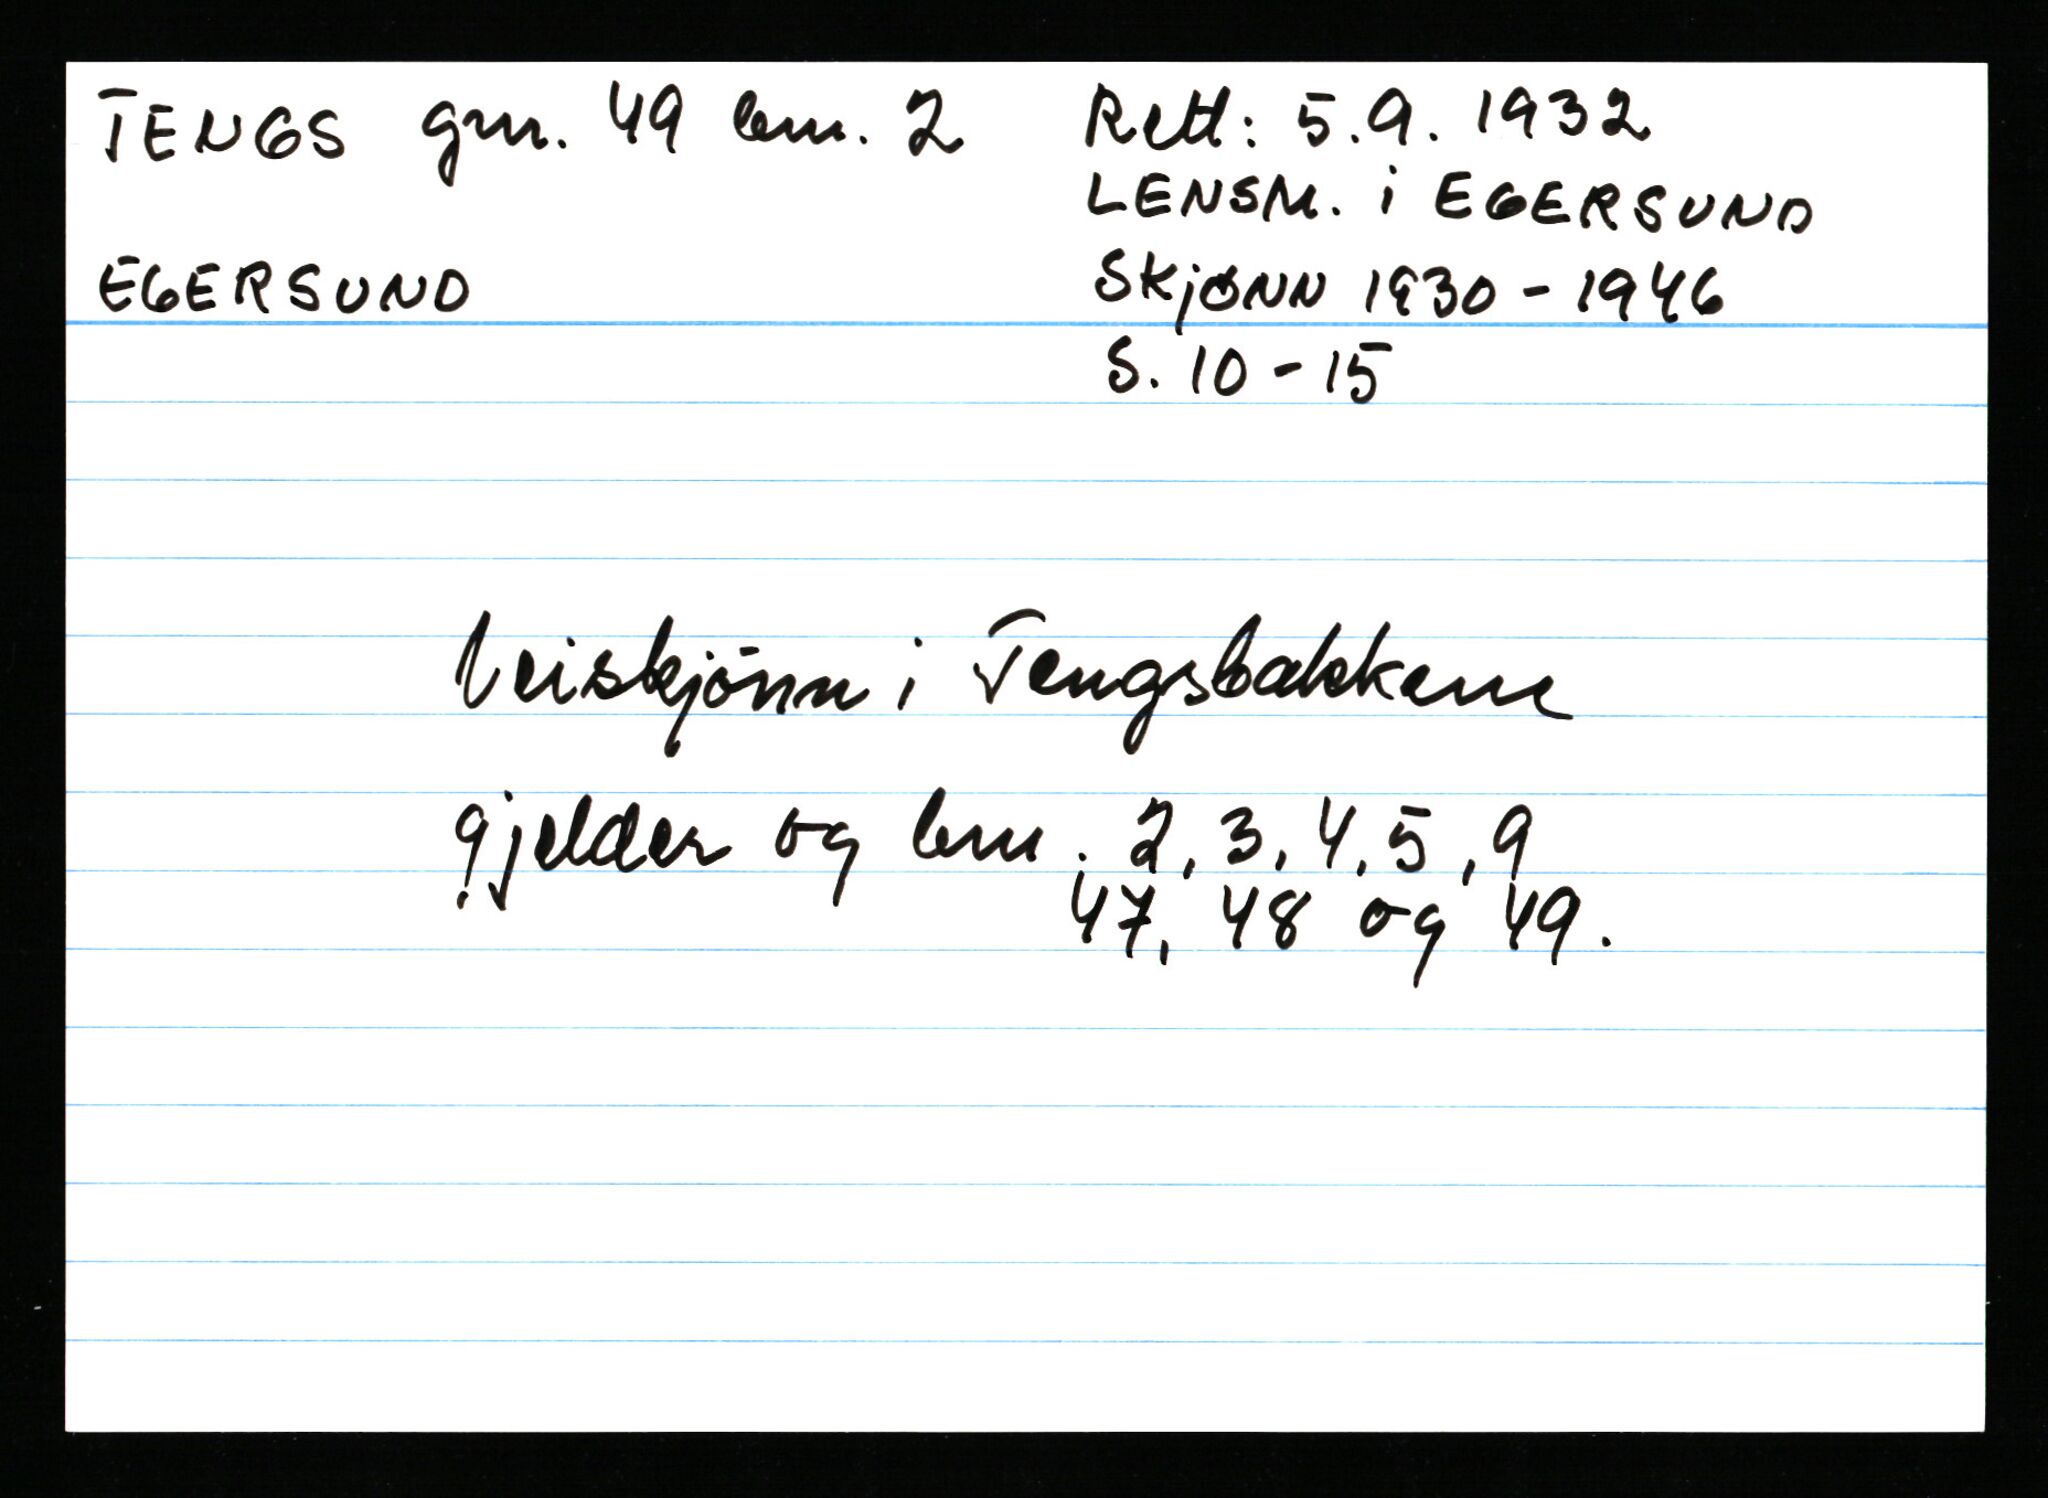 TENGS gnr. 49 bnr. 2
EGERSUND
Rett: 5.9.1932
LENSM. i EGERSUND
SKjØNN 1930-1946
S. 10-15
Veiskjönn i Tengsbakkene
gjelder og bnr. 2, 3, 4, 5, 9
47, 48 og 49.